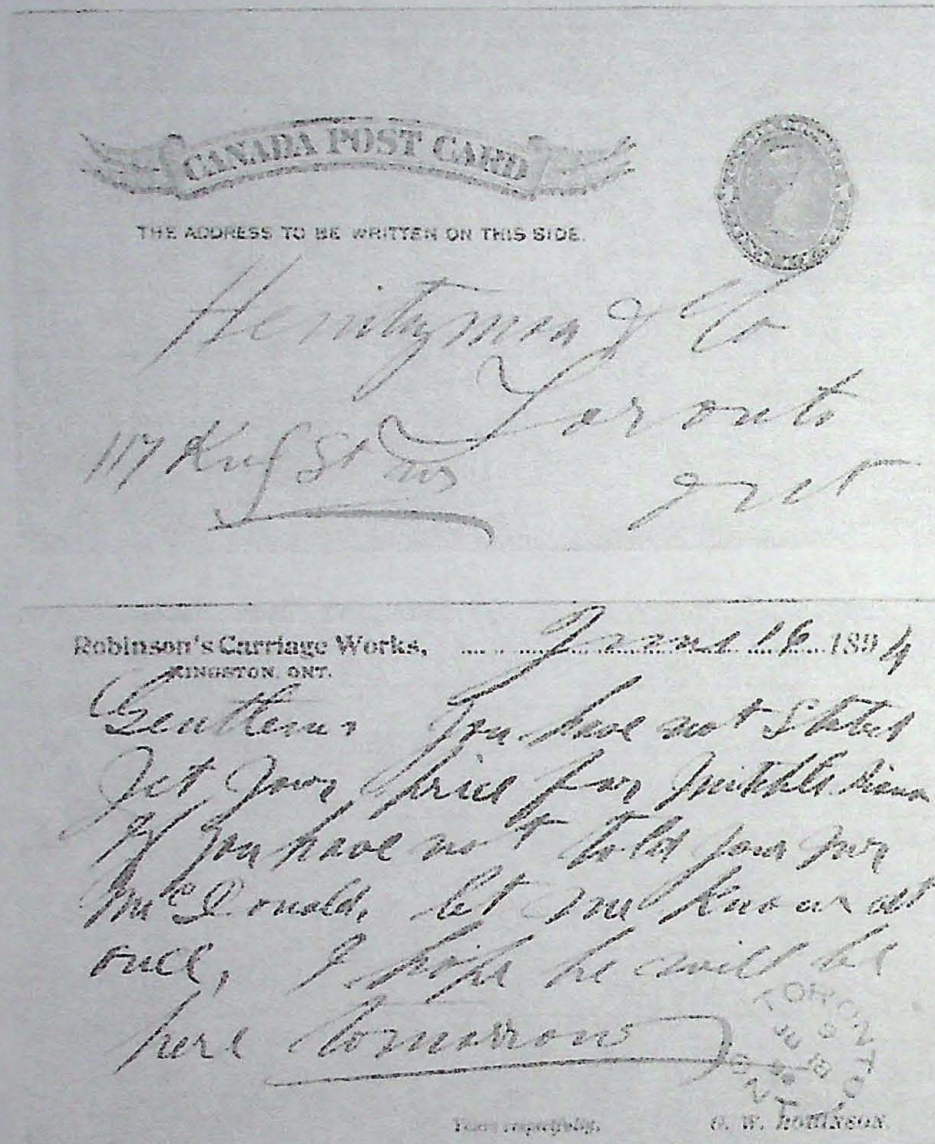 CANADA POST CARD
THE ADDRESS TO BE WRITTEN ON THIS SIDE.
& Co
Toronto
117 King St W
Ont
Robinson's Carriage Works, June 16 1894
KINGSTON, ONT.
You have not stated
yet your price for
If you have not told your Mr
McDonald, let me know at
once, I hope he will be
here tomorrow
TORONTO
Yours respectfully, G. W. ROBINSON.